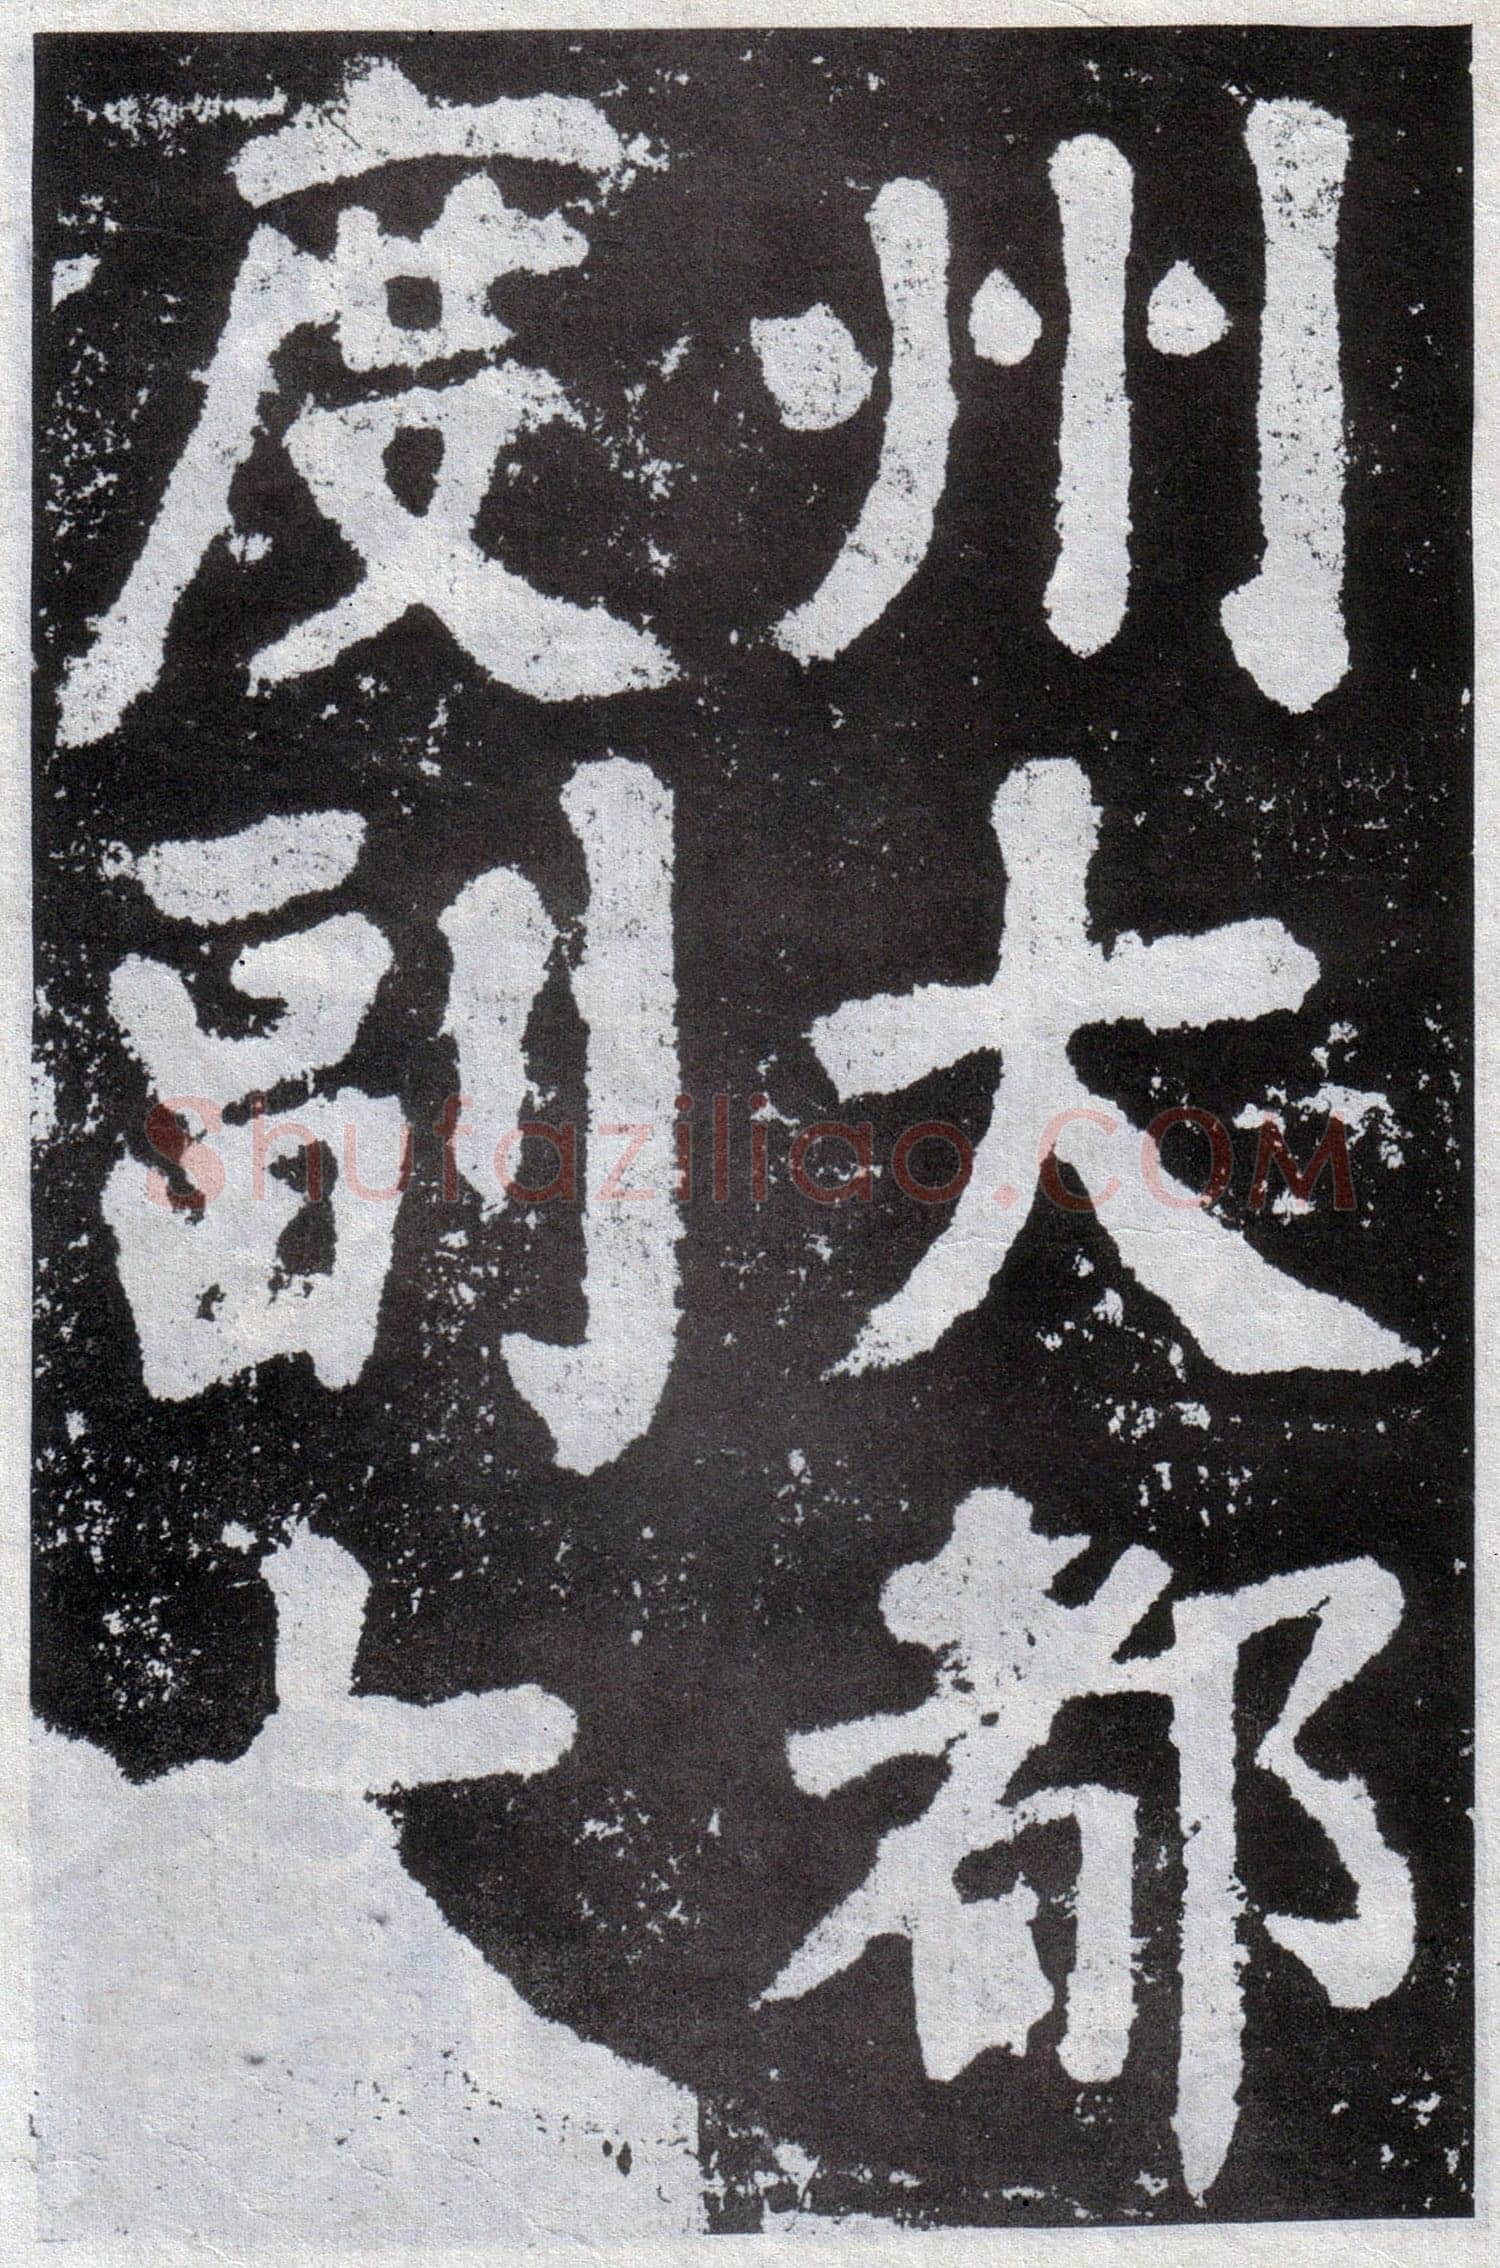 州大都
度副大
Shufaziliao.COM